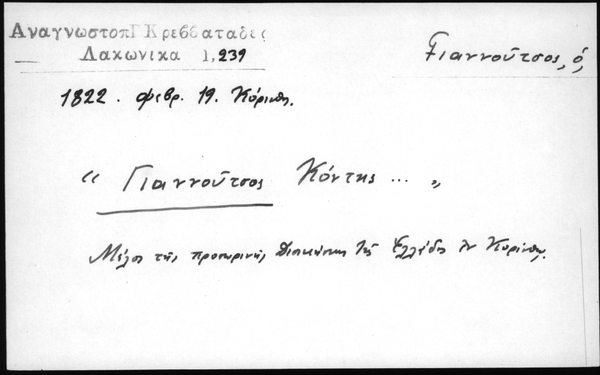 ΑναγνωστοπΓ Κρεββαταδες
Λακωνικα 1,239
Γιαννοῦτσος, ὁ,
1822. φεβρ. 19. Κόρινθ.
“ Γιαννοῦτσος Κόντης ... „
Μέλος τῆς προσωρινῆς Διοικήσεως τῆς Ἑλλάδος ἐν Κορίνθῳ.